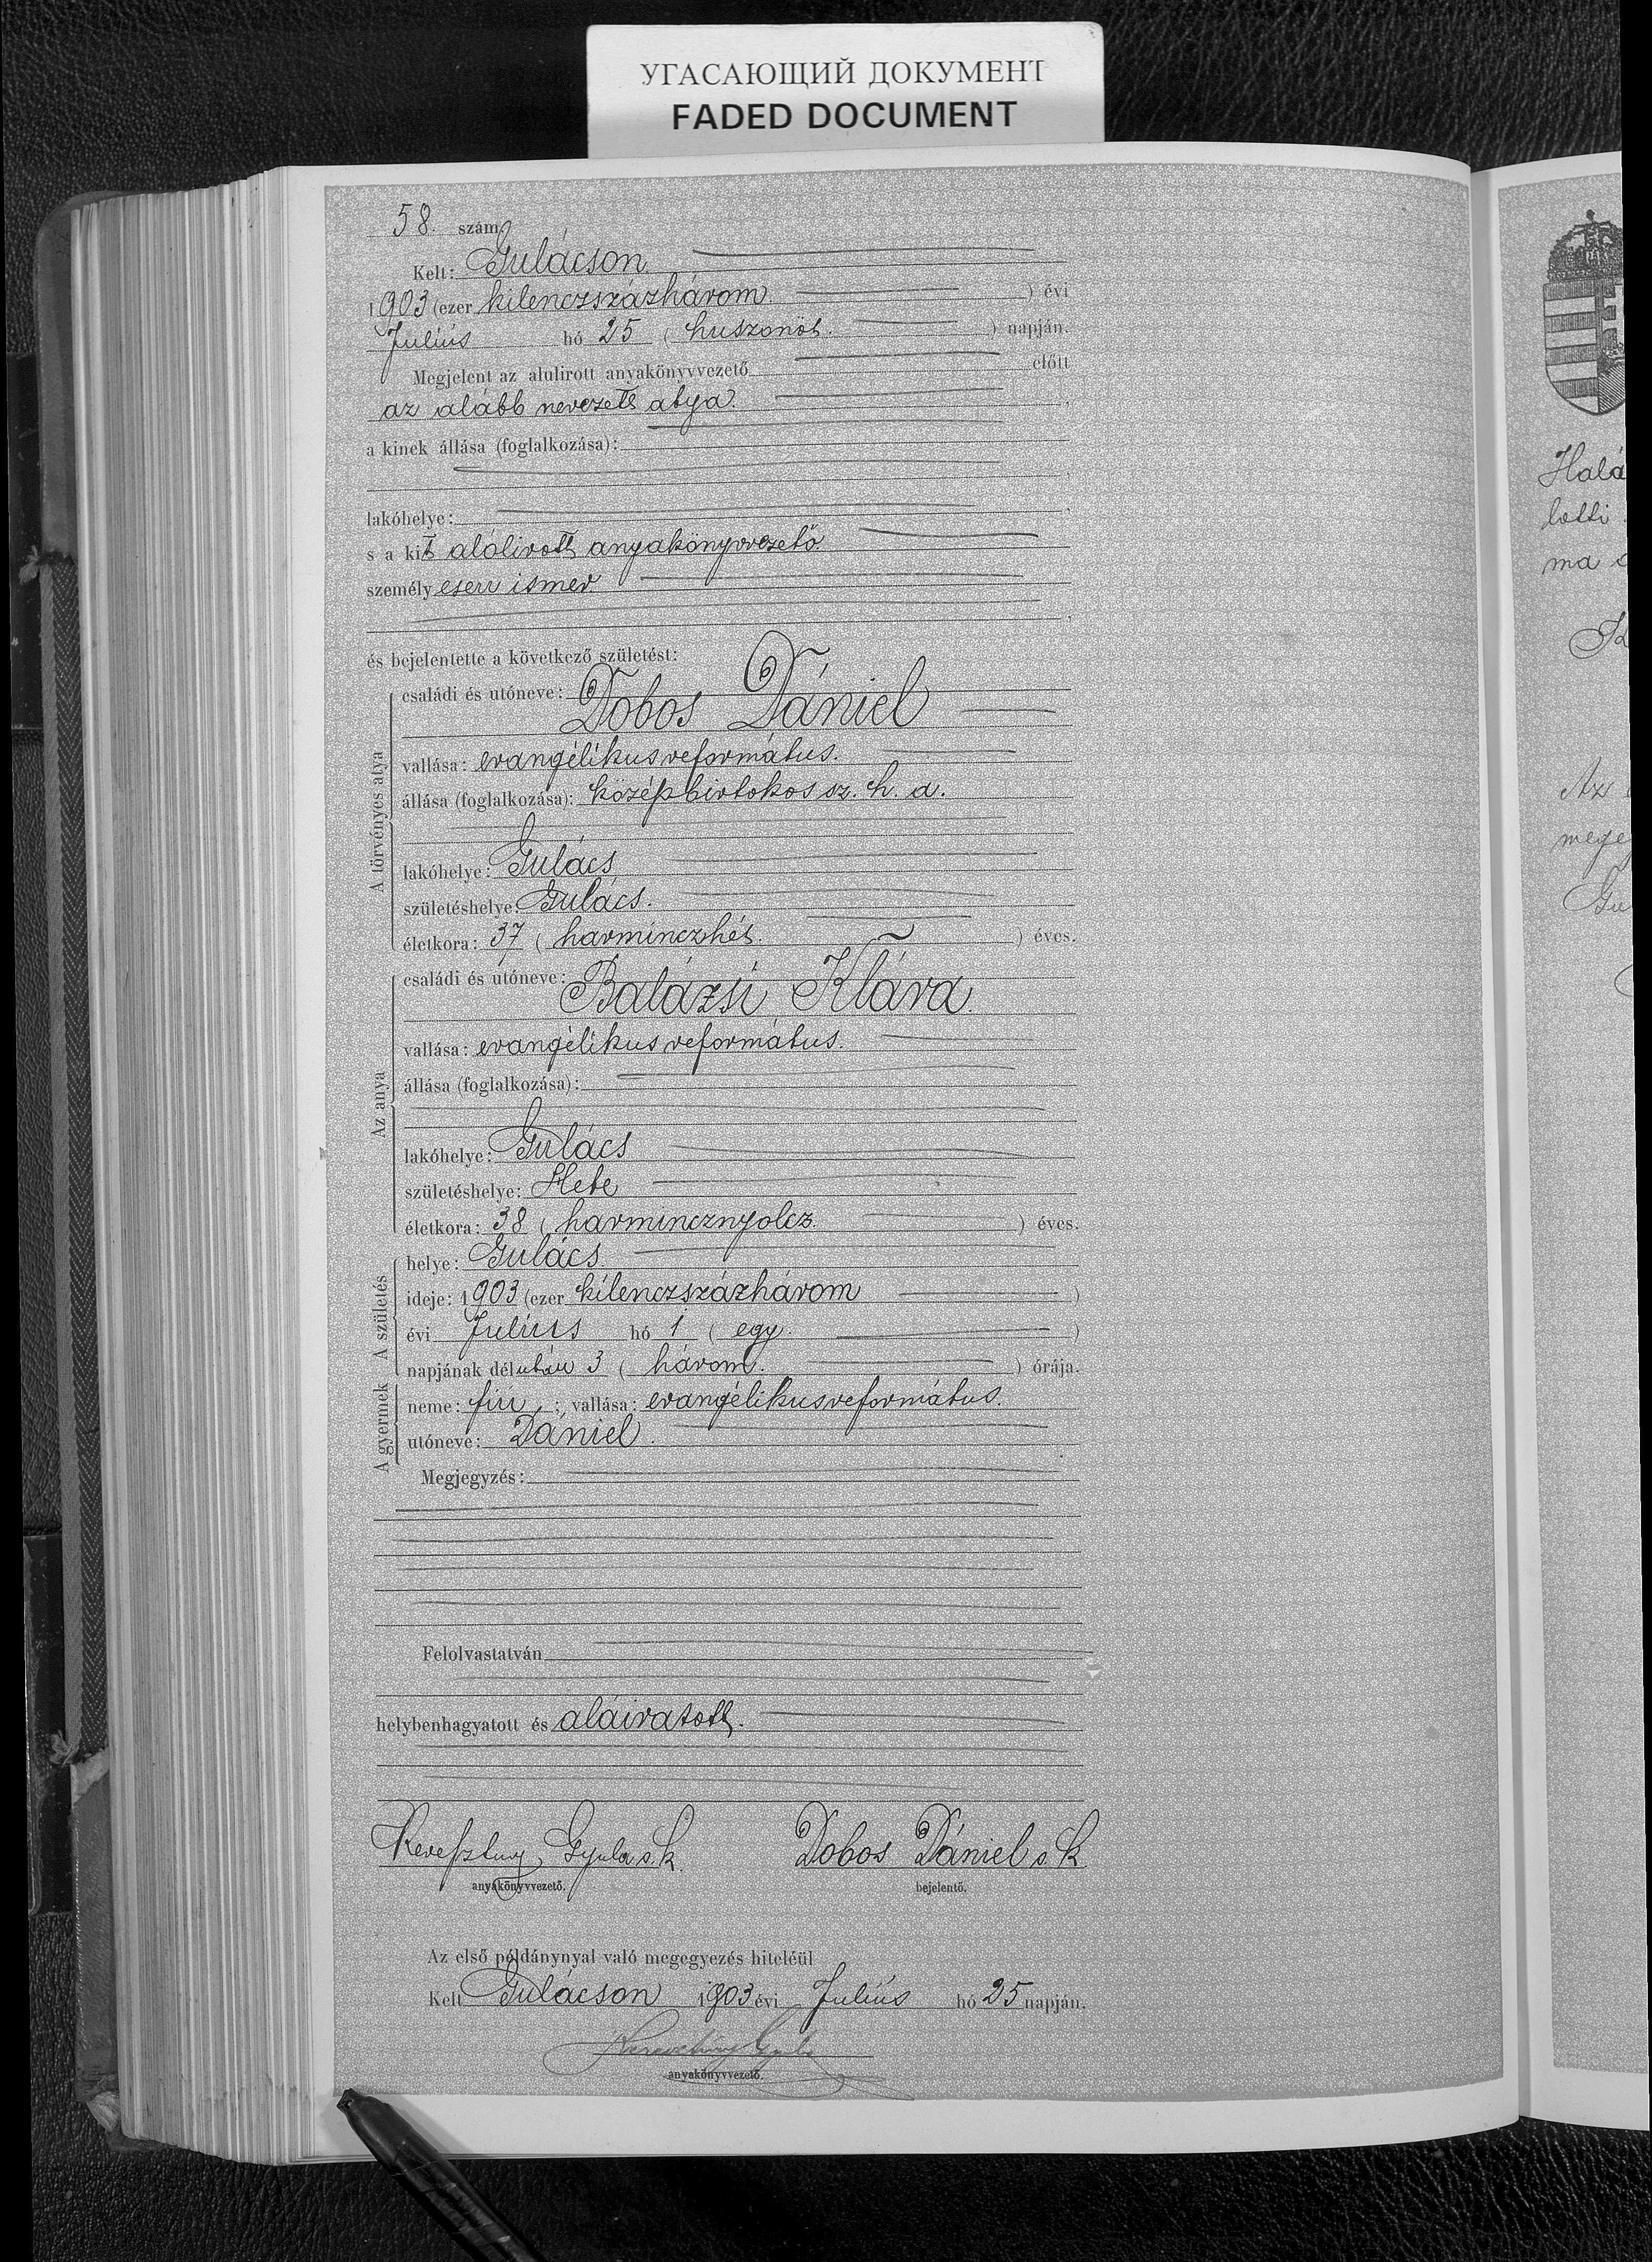 УГАСАЮЩИЙ ДОКУМЕНТ
FADED DOCUMENT
58. szám
Kelt: Gulácson.
1903 (ezer kilenczszázhárom. ) évi
Július hó 25 ( huszonöt. ) napján.
Megjelent az alulirott anyakönyvvezető előtt
az alább nevezett atya.
a kinek állása (foglalkozása):
,
lakóhelye: ,
s a kit alólirott anyakönyvvezető
személyesen ismer.
,
és bejelentette a következő születést:
A törvényes atya
családi és utóneve: Dobos Dániel
vallása: evangélikus református.
állása (foglalkozása): középbirtokos sz. h. a.
lakóhelye: Gulács
születéshelye: Gulács.
életkora: 37 ( harminczhét. ) éves.
Az anya
családi és utóneve: Balázsi Klára.
vallása: evangélikus református.
állása (foglalkozása):
lakóhelye: Gulács
születéshelye: Hete
életkora: 38 ( harmincznyolcz. ) éves.
A születés
helye: Gulács.
ideje: 1903 (ezer kilenczszázhárom )
évi Július hó 1 ( egy. )
napjának délután 3 ( három. ) órája.
A gyermek
neme: fiú ; vallása: evangélikus református.
utóneve: Dániel.
Megjegyzés:
Felolvastatván
helybenhagyatott és aláiratott.
Gyula s. k. Dobos Dániel s. k.
anyakönyvvezető. bejelentő.
Az első példánynyal való megegyezés hiteléül
Kelt Gulácson 1903 évi Július hó 25 napján.
Gyula
anyakönyvvezető.
Halá
lotti
ma
Az
mege
Gu